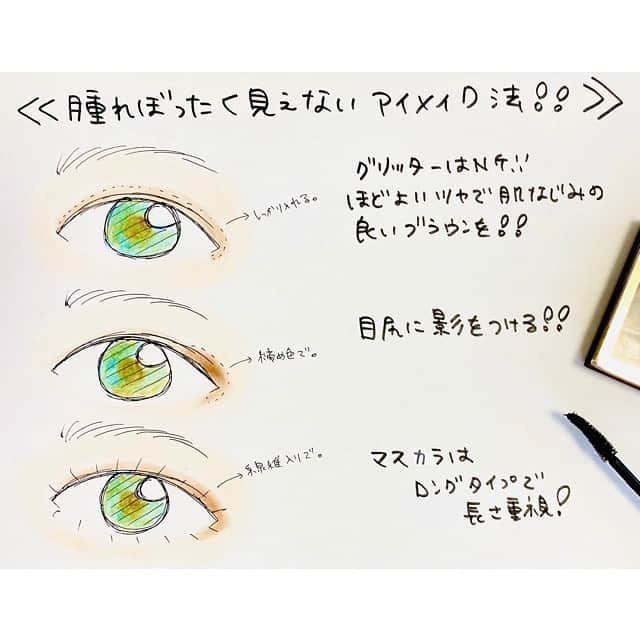 ≪腫れぼったく見えないアイメイク法!!≫
グリッターはNG!!
ほどよいツヤで肌なじみの
良いブラウンを!!
しっかり入れる。
目尻に影をつける!!
締め色で。
マスカラは
ロングタイプで
長さ重視!
繊維入りで。